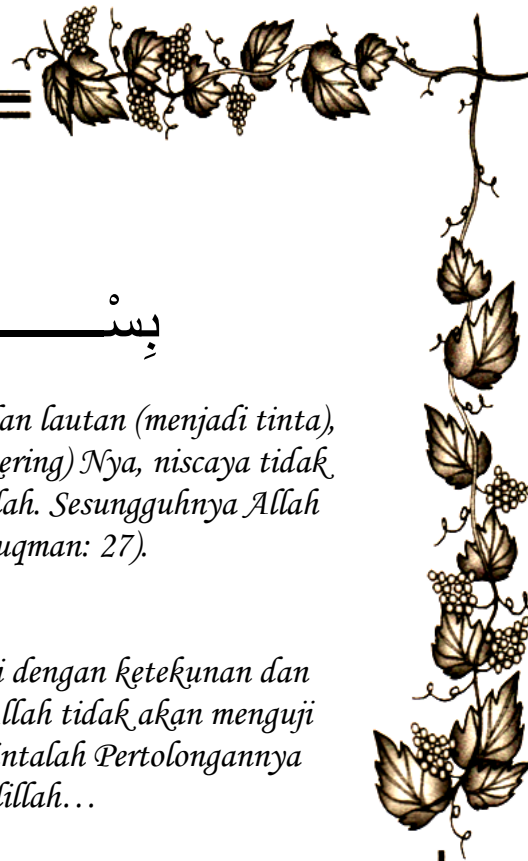 بِسْـــــــ
an lautan (menjadi tinta),
ering) Nya, niscaya tidak
lah. Sesungguhnya Allah
uqman: 27).
i dengan ketekunan dan
llah tidak akan menguji
intalah Pertolongannya
lillah…